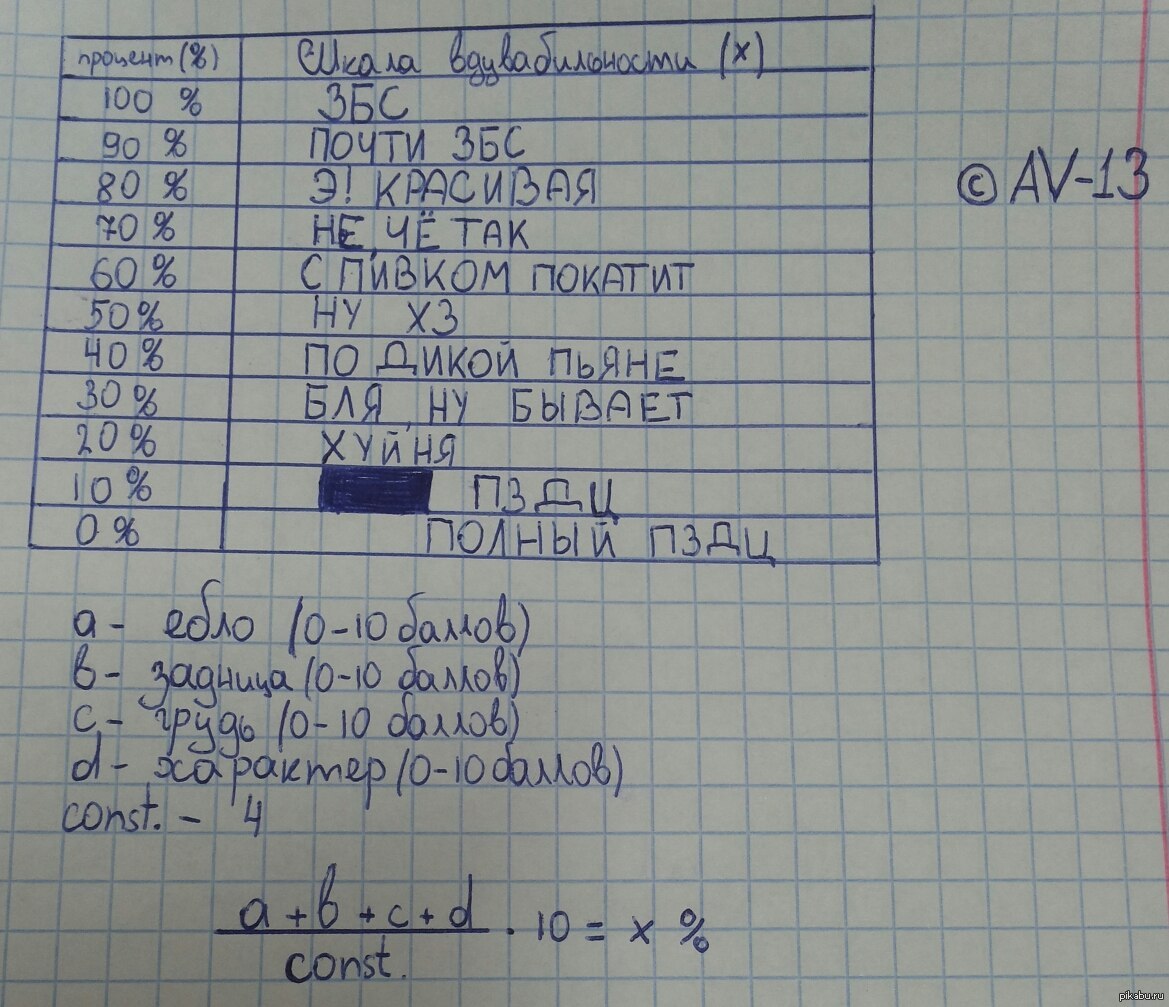 процент (%) Шкала вдувабильности (x)
100 % ЗБС
90 % ПОЧТИ ЗБС
80 % Э! КРАСИВАЯ
70 % НЕ, ЧЁ ТАК
60 % С ПИВКОМ ПОКАТИТ
50 % НУ ХЗ
40 % ПО ДИКОЙ ПЬЯНЕ
30 % БЛЯ, НУ БЫВАЕТ
20 % ХУЙНЯ
10 % ПЗДЦ
0 % ПОЛНЫЙ ПЗДЦ
© AV-13
a - ебло (0-10 баллов)
b - задница (0-10 баллов)
c - грудь (0-10 баллов)
d - характер (0-10 баллов)
const. - 4
a + b + c + d
const.
· 10 = x %
pikabu.ru